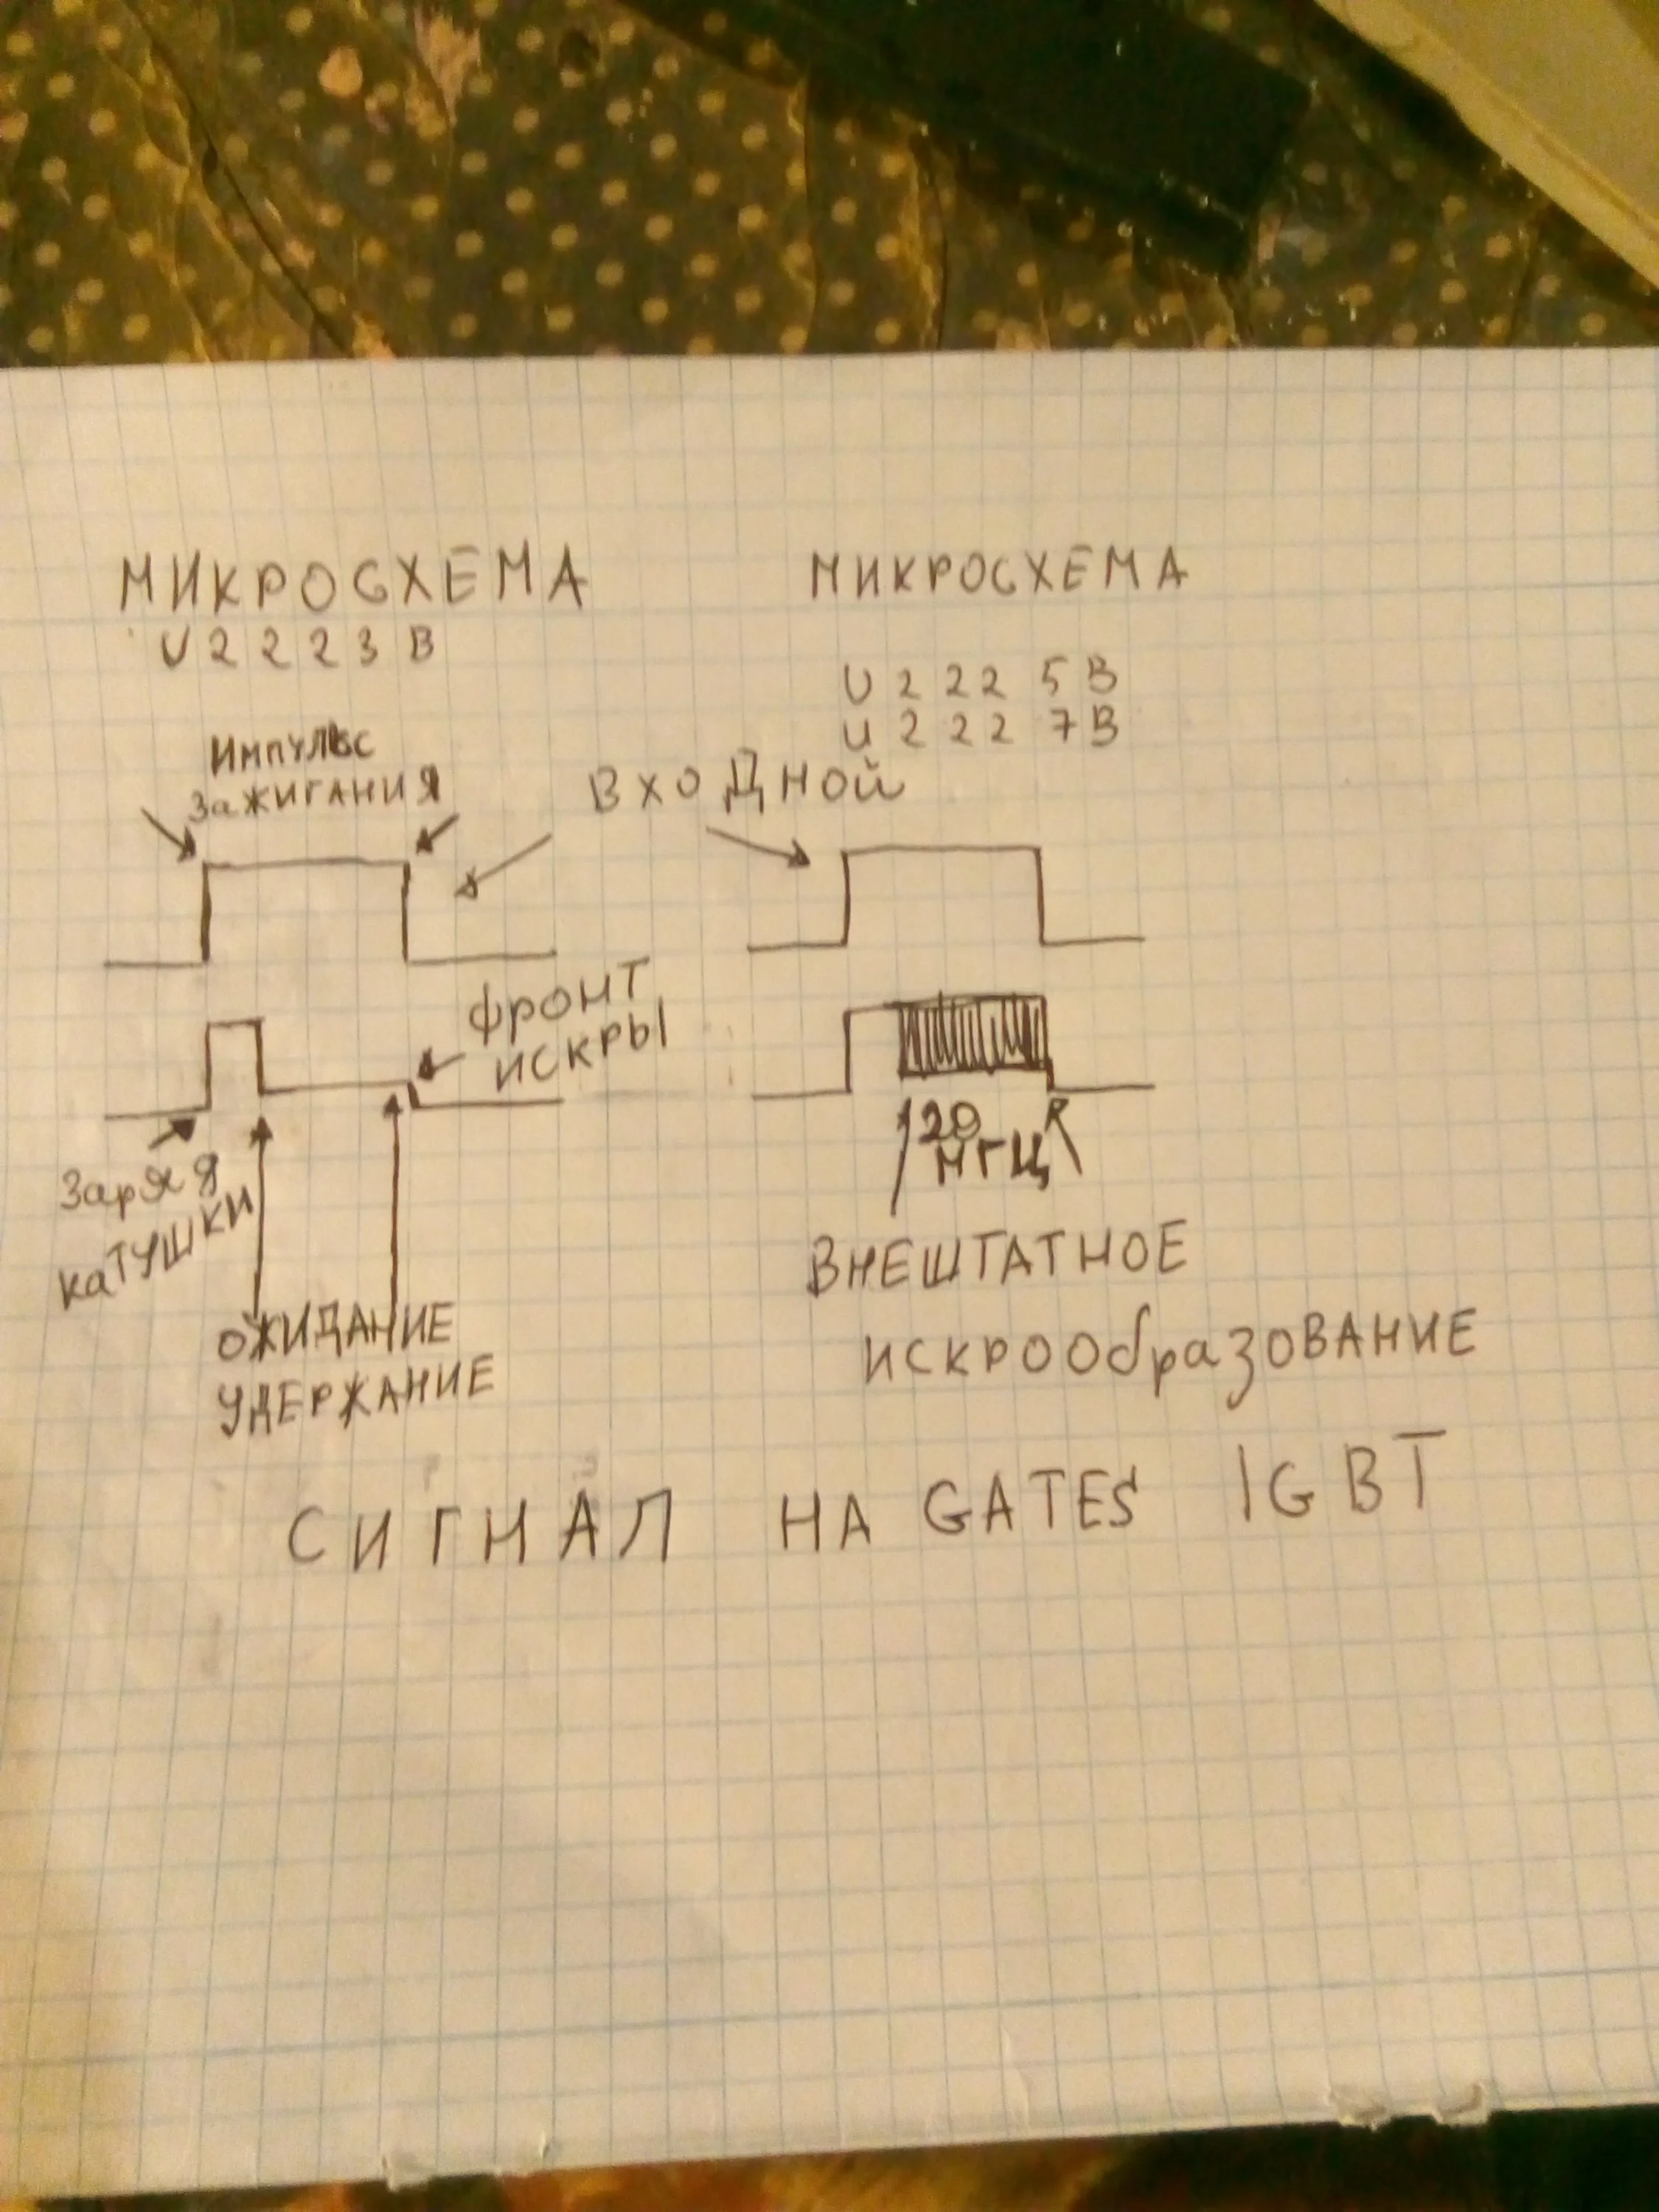 МИКРОСХЕМА
U2223B
ИМПУЛЬС
ЗаЖИГАНИЯ
МИКРОСХЕМА
U2225B
U2227B
ВХОДНОЙ
ФРОНТ
ИСКРЫ
каТУШКИ
ОЖИДАНИЕ
УДЕРЖАНИЕ
20
МГЦ
ВНЕШТАТНОЕ
ИСКРООбраЗОВАНИЕ
СИГНАЛ НА GATES IGBT